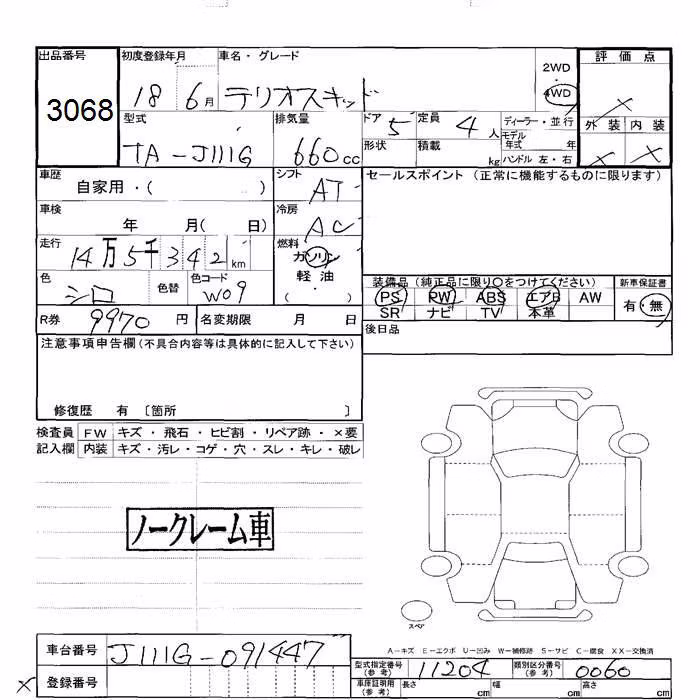 出品番号 初度登録年月 車名・グレード 評価点
3068 18 6月 テリオスキッド 2WD・4WD ×
型式 排気量 ドア 5 定員 4人 ディーラー・並行 外装 内装
TA-J111G 660cc 形状 積載 kg モデル年式 年 × ×
ハンドル 左・右
車歴 自家用・( ) シフト AT セールスポイント (正常に機能するものに限ります)
車検 年 月( 日) 冷房 AC
走行 14万5千342km 燃料 ガソリン
軽油
・( )
色 シロ 色替 色コード W09 装備品(純正品に限り〇をつけてください) 新車保証書
PS PW ABS エアB AW 有・無
SR ナビ TV 本革
R券 9970円 名変期限 月 日 後日品
注意事項申告欄(不具合内容等は具体的に記入して下さい)
修復歴 有 〔箇所 〕
検査員 FW キズ・飛石・ヒビ割・リペア跡・×要
記入欄 内装 キズ・汚レ・コゲ・穴・スレ・キレ・破レ
ノークレーム車
スペア
A-キズ E-エクボ U-凹み W-補修跡 S-サビ C-腐食 XX-交換済
車台番号 J111G-091447 型式指定番号(参考) 11204 類別区分番号(参考) 0060
× 登録番号 車庫証明用(参考) 長さ cm 幅 cm 高さ cm